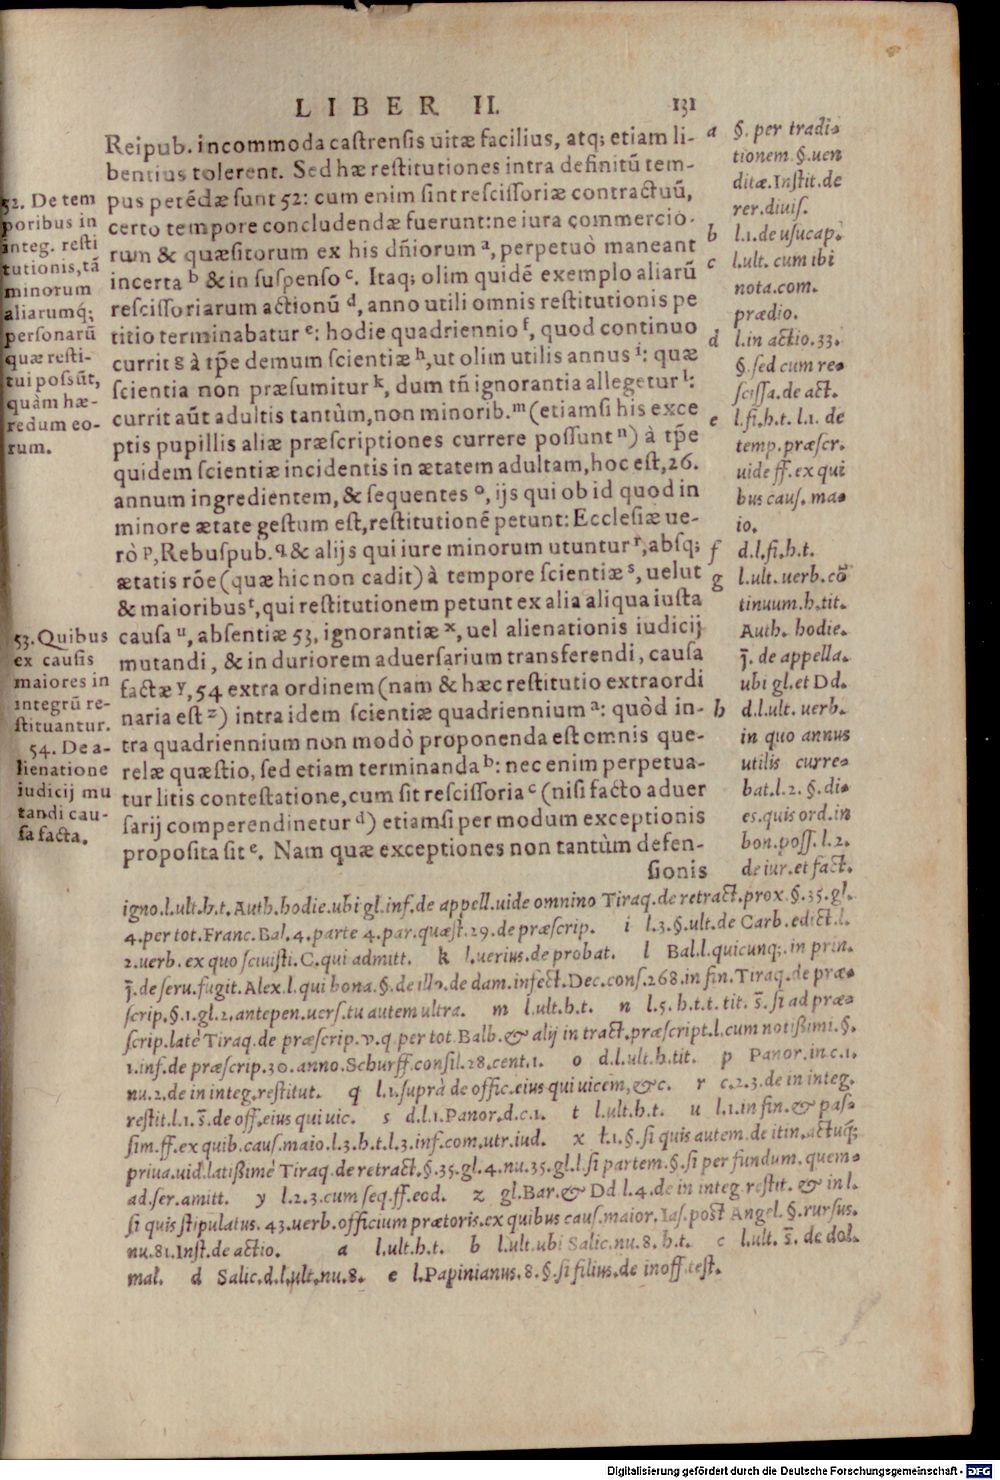 LIBER II. 131
Reipub. incommoda castrensis uitæ facilius, atq; etiam li-
bentius tolerent. Sed hæ restitutiones intra definitũ tem-
pus petẽdæ sunt 52: cum enim sint rescissoriæ contractuũ,
certo tempore concludendæ fuerunt: ne iura commercio-
rum & quæsitorum ex his dñiorum a, perpetuò maneant
incerta b & in suspenso c. Itaq; olim quidẽ exemplo aliarũ
rescissoriarum actionũ d, anno utili omnis restitutionis pe
titio terminabatur e: hodie quadriennio f, quod continuo
currit g à tp̃e demum scientiæ h, ut olim utilis annus i: quæ
scientia non præsumitur k, dum tñ ignorantia allegetur l:
currit aũt adultis tantùm, non minorib. m (etiamsi his exce
ptis pupillis aliæ præscriptiones currere possunt n) à tp̃e
quidem scientiæ incidentis in ætatem adultam, hoc est, 26.
annum ingredientem, & sequentes o, ijs qui ob id quod in
minore ætate gestum est, restitutionẽ petunt: Ecclesiæ ue-
rò p, Rebuspub. q & alijs qui iure minorum utuntur r, absq;
ætatis rõe (quæ hic non cadit) à tempore scientiæ s, uelut
& maioribus t, qui restitutionem petunt ex alia aliqua iusta
causa u, absentiæ 53, ignorantiæ x, uel alienationis iudicij
mutandi, & in duriorem aduersarium transferendi, causa
factæ y, 54 extra ordinem (nam & hæc restitutio extraordi
naria est z) intra idem scientiæ quadriennium a: quòd in-
tra quadriennium non modò proponenda est omnis que-
relæ quæstio, sed etiam terminanda b: nec enim perpetua-
tur litis contestatione, cum sit rescissoria c (nisi facto aduer
sarij comperendinetur d) etiamsi per modum exceptionis
proposita sit e. Nam quæ exceptiones non tantùm defen-
sionis
52. De tem
poribus in
integ. resti
tutionis, tã
minorum
aliarumq;
personarũ
quæ resti-
tui possũt,
quàm hæ-
redum eo-
rum.
53. Quibus
ex causis
maiores in
integrũ re-
stituantur.
54. De a-
lienatione
iudicij mu
tandi cau-
sa facta.
a §. per tradi-
tionem §. uen
ditæ. Instit. de
rer. diuis.
b l.1. de usucap.
c l.ult. cum ibi
nota. com.
prædio.
d l. in actio. 33.
§. sed cum re-
scissa. de act.
e l.fi.h.t. l.1. de
temp. præscr.
uide ff. ex qui
bus caus. ma-
io.
f d.l.fi.h.t.
g l.ult. uerb. cõ
tinuum. h. tit.
Auth. hodie.
j. de appella.
ubi gl. et Dd.
h d.l.ult. uerb.
in quo annus
utilis curre-
bat. l.2. §. di-
es. quis ord. in
bon. poss. l.2.
de iur. et fact.
igno. l.ult.h.t. Auth. hodie. ubi gl. inf. de appell. uide omnino Tiraq. de retract. prox. §.35. gl.
4. per tot. Franc. Bal. 4. parte 4. par. quæst. 29. de præscrip. i l.3. §. ult. de Carb. edict. l.
2. uerb. ex quo sciuisti. C. qui admitt. k l. uerius. de probat. l Bal. l. quicunq;. in prin.
j. de seru. fugit. Alex. l. qui bona. §. de illo. de dam. infect. Dec. cons. 268. in fin. Tiraq. de præ-
scrip. §.1. gl.2. antepen. uers. tu autem ultra. m l.ult.h.t. n l.5. h.t.t. tit. s̄. si ad præ-
scrip. latè Tiraq. de præscrip. v. q. per tot. Balb. & alij in tract. præscript. l. cum notißimi. §.
1. inf. de præscrip. 30. anno. Schurff. consil. 28. cent. 1. o d.l.ult.h.tit. p Panor. in c.1.
nu. 2. de in integ. restitut. q l.1. suprà de offic. eius qui uicem, &c. r c.2.3. de in integ.
restit. l.1. s̄. de off. eius qui uic. s d.l.1. Panor. d.c.1. t l.ult.h.t. u l.1. in fin. & pas-
sim. ff. ex quib. caus. maio. l.3. h.t. l.3. inf. com. utr. iud. x l.1. §. si quis autem. de itin. actuq;
priua. uid. latißimè Tiraq. de retract. §.35. gl.4. nu.35. gl. l. si partem. §. si per fundum. quem-
ad. ser. amitt. y l.2.3. cum seq. ff. eod. z gl. Bar. & Dd l.4. de in integ restit. & in l.
si quis stipulatus. 43. uerb. officium prætoris. ex quibus caus. maior. Ias. post Angel. §. rursus.
nu. 81. Inst. de actio. a l.ult.h.t. b l.ult. ubi Salic. nu. 8. h.t. c l.ult. s̄. de dol.
mal. d Salic. d.l.ult. nu. 8. e l. Papinianus. 8. §. si filius. de inoff. test.
Digitalisierung gefördert durch die Deutsche Forschungsgemeinschaft - DFG